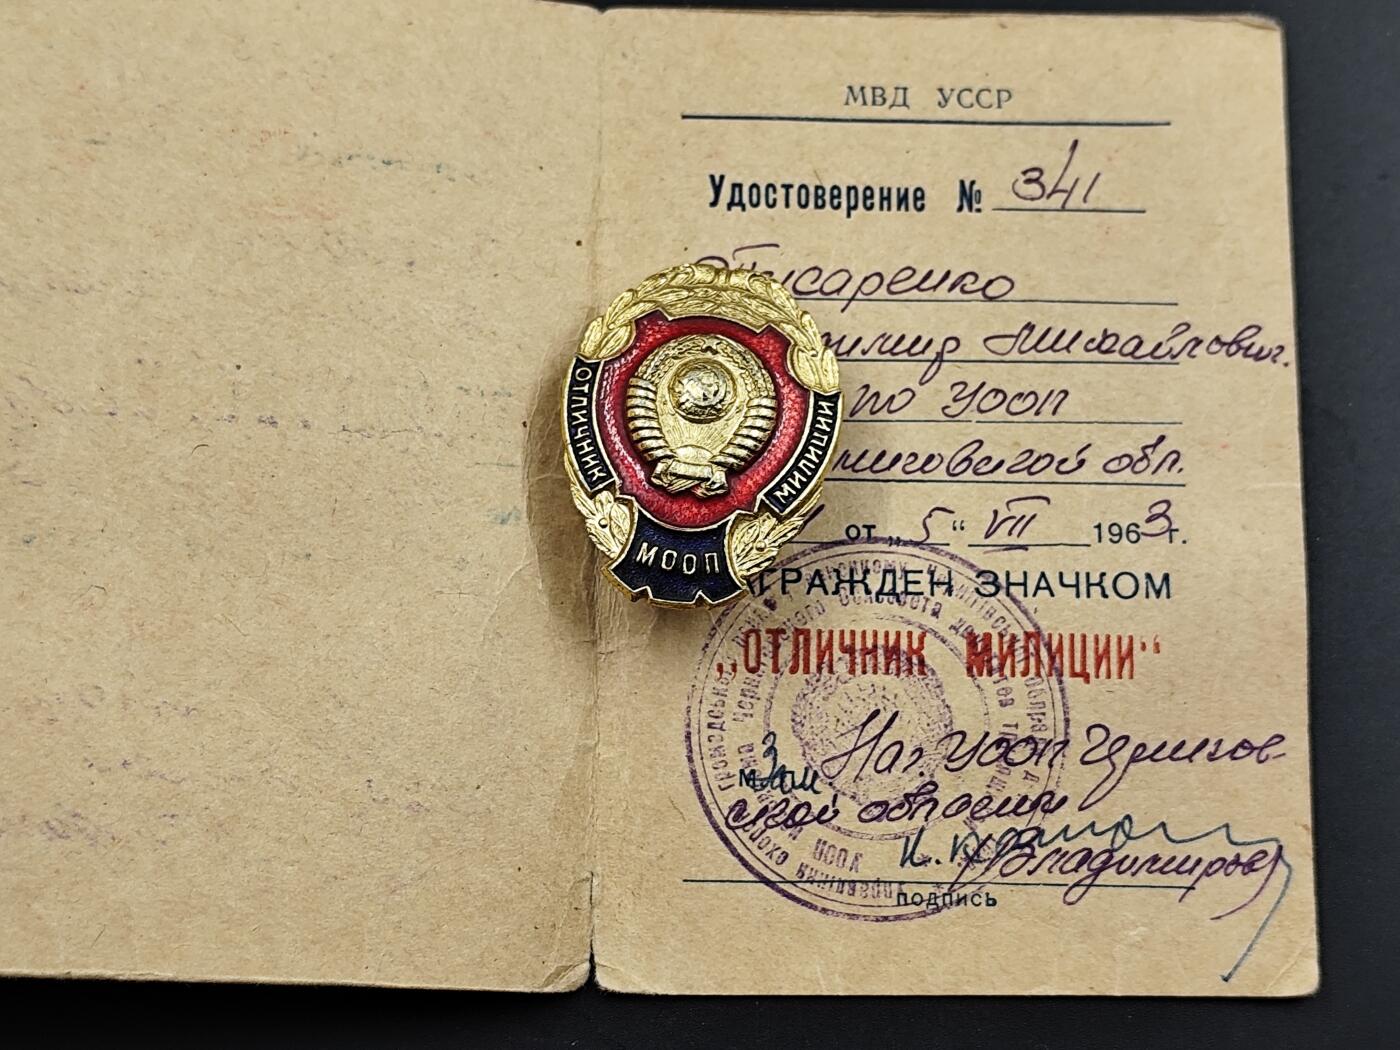 МВД УССР
Удостоверение № 341
Писаренко
Михайлович.
по УООП
обл.
от „5“ VII 1963 г.
АГРАЖДЕН ЗНАЧКОМ
„ОТЛИЧНИК МИЛИЦИИ“
Нач УООП Чернигов-
ской области
Владимиров
подпись
ОТЛИЧНИК
МИЛИЦИИ
МООП